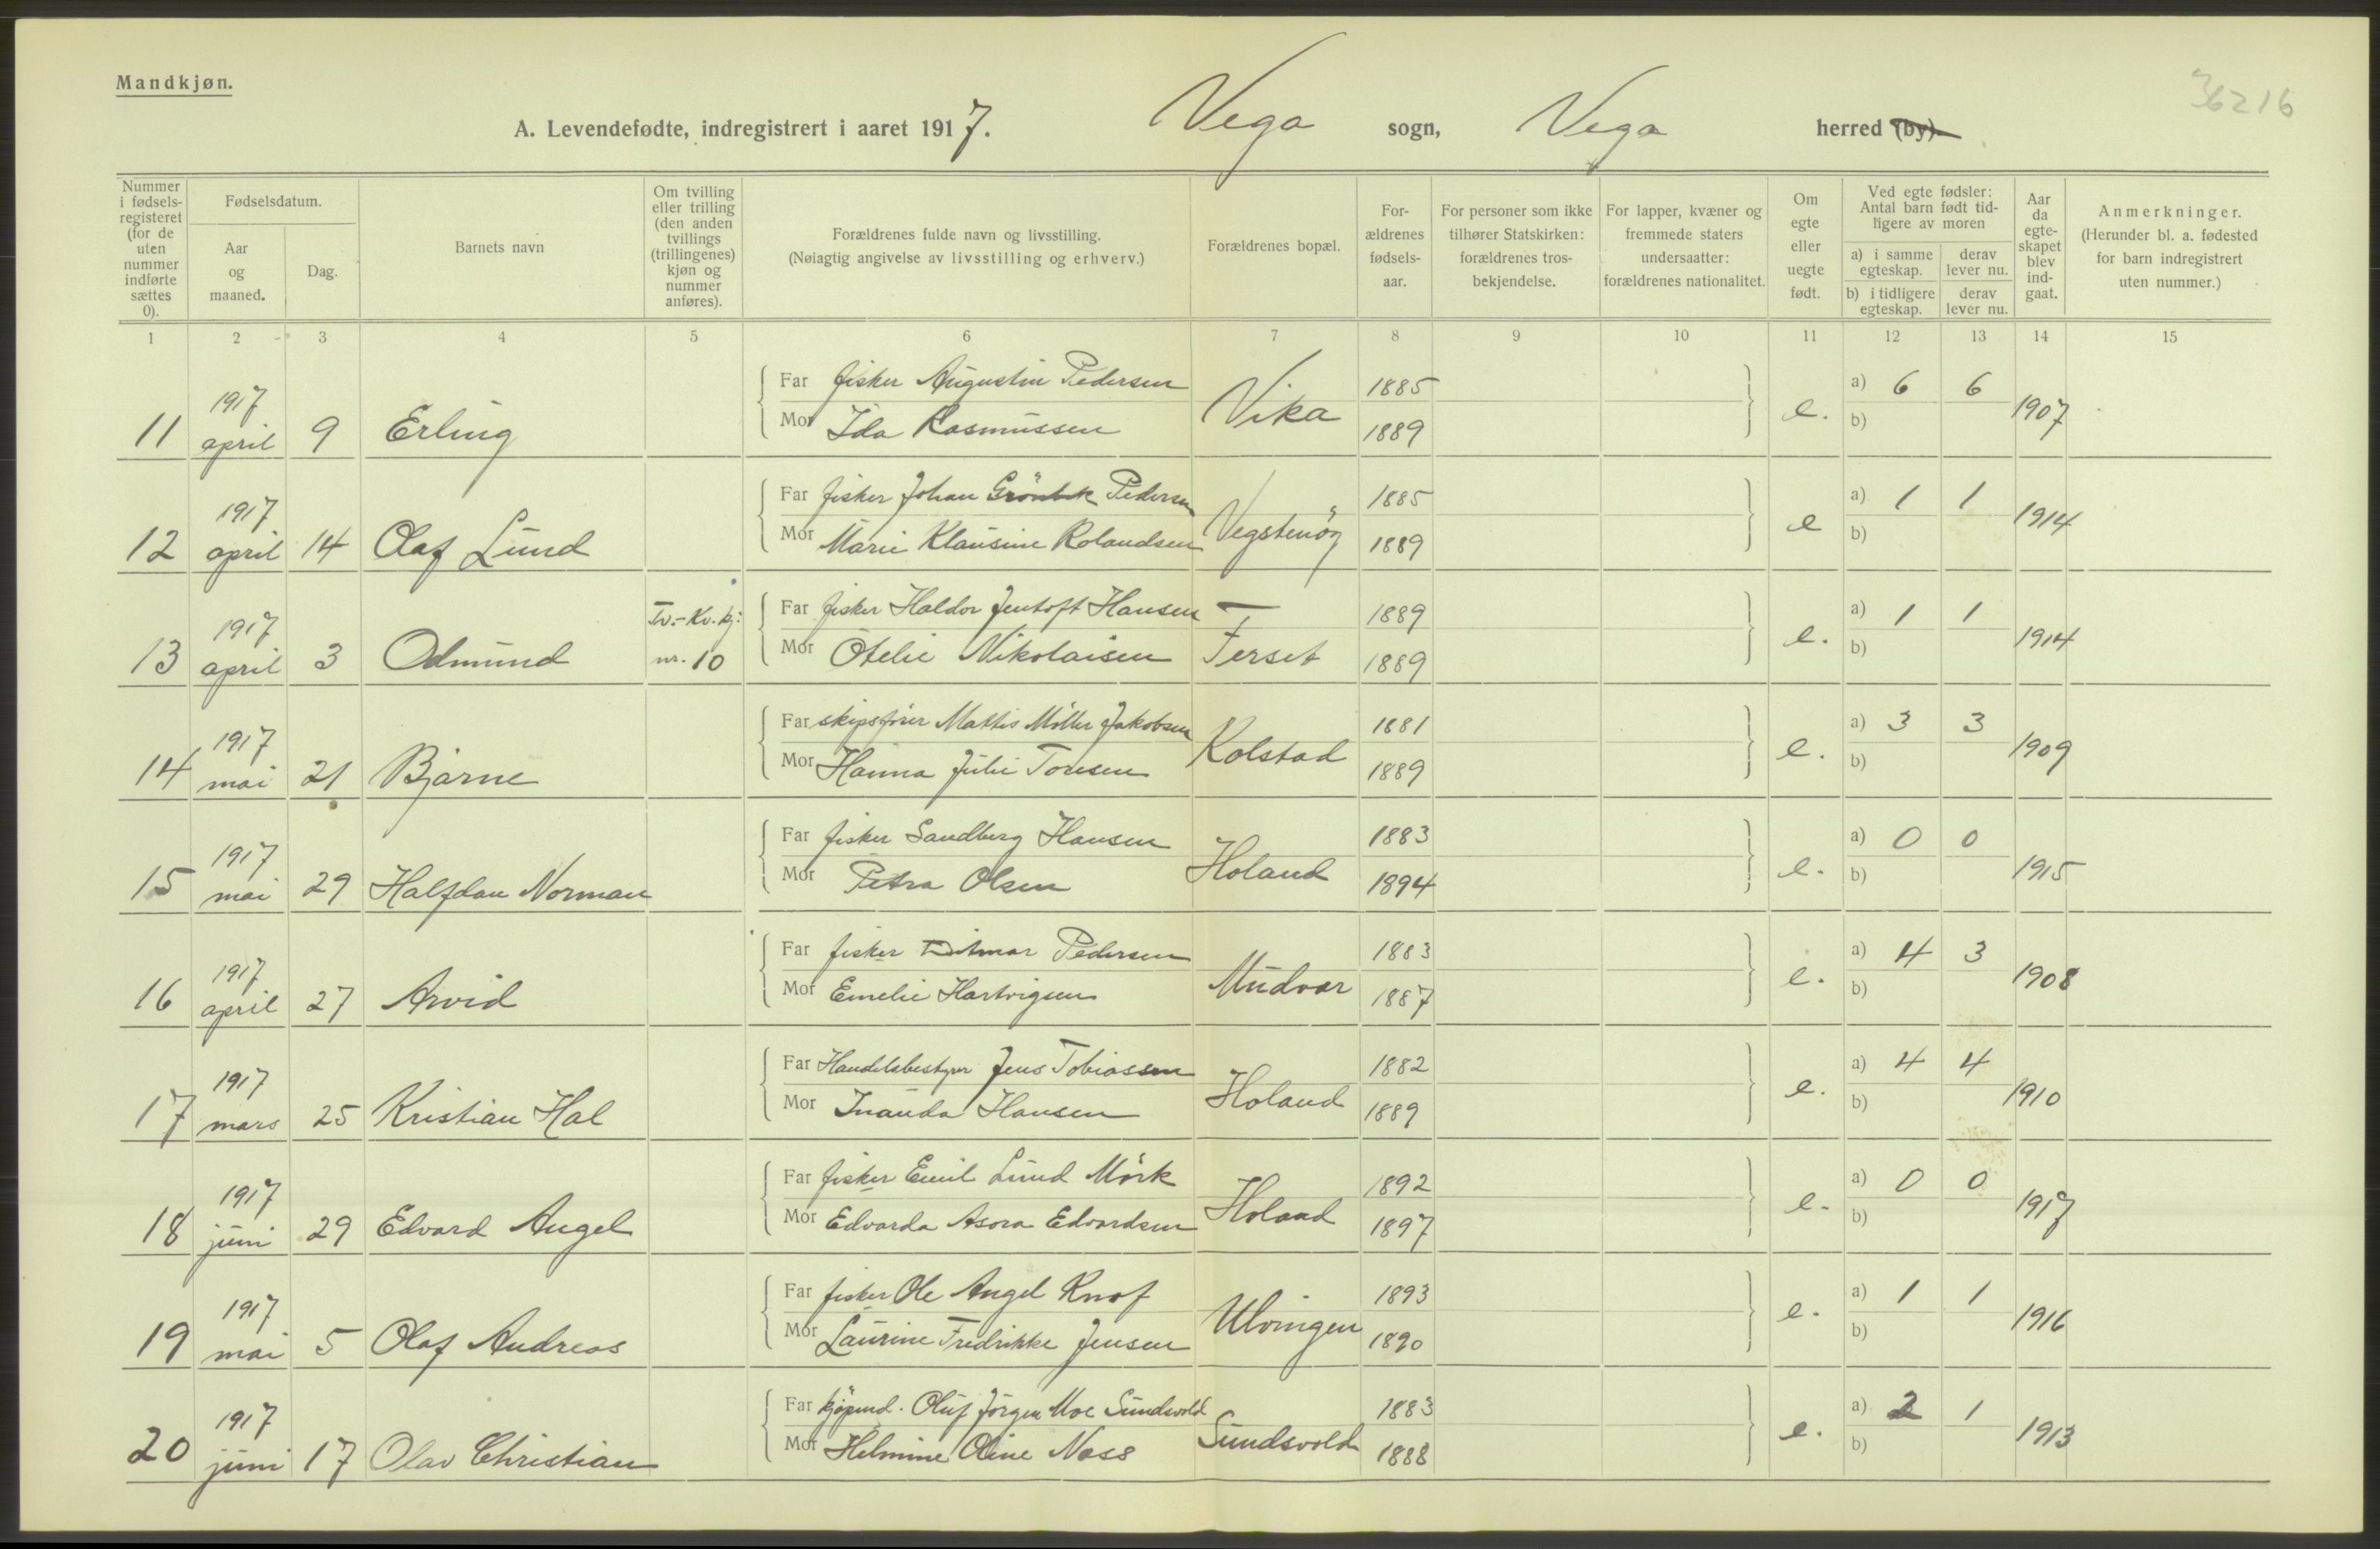 Mandkjøn.
36216
A. Levendefødte, indregistrert i aaret 1917. Vega sogn, Vega herred (by).
Nummer i fødsels-registeret (for de uten nummer indførte sættes 0).
Fødselsdatum.
Aar og maaned.
Dag.
Barnets navn
Om tvilling eller trilling (den anden tvillings (trillingenes) kjøn og nummer anføres).
Forældrenes fulde navn og livsstilling.
(Nøiagtig angivelse av livsstilling og erhverv.)
Forældrenes bopæl.
For-ældrenes fødsels-aar.
For personer som ikke tilhører Statskirken: forældrenes tros-bekjendelse.
For lapper, kvæner og fremmede staters undersaatter: forældrenes nationalitet.
Om egte eller uegte født.
Ved egte fødsler: Antal barn født tid-ligere av moren
a) i samme egteskap. derav lever nu.
b) i tidligere egteskap. derav lever nu.
Aar da egte-skapet blev ind-gaat.
Anmerkninger.
(Herunder bl. a. fødested for barn indregistrert uten nummer.)
1 2 3 4 5 6 7 8 9 10 11 12 13 14 15
1917 Far fisker Augustin Pedersen 1885 a) 6 6
11 april 9 Erling Mor Ida Rasmussen Vika 1889 e. b) 1907
1917 Far fisker Johan Pedersen 1885 a) 1 1
12 april 14 Olaf Lund Mor Marie Klausine Rolandsen 1889 e b) 1914
1917 Tv.-Kv.kj: Far fisker Haldor Jentoft Hansen 1889 a) 1 1
13 april 3 Odmund nr. 10 Mor Otelie Nikolaisen Ferset 1889 e. b) 1914
1917 Far skipsfører Mattis Möller Jakobsen 1881 a) 3 3
14 mai 21 Bjarne Mor Hanna Julie Tonesen Kolstad 1889 e. b) 1909
1917 Far fisker Sandberg Hansen 1883 a) 0 0
15 mai 29 Halfdan Norman Mor Petra Olsen Holand 1894 e. b) 1915
1917 Far fisker Ditmar Pedersen 1883 a) 4 3
16 april 27 Arvid Mor Emelie Hartvigsen Mudvær 1887 e. b) 1908
1917 Far Handelsbestyrer Jens Tobiassen 1882 a) 4 4
17 mars 25 Kristian Hal Mor Inanda Hansen Holand 1889 e. b) 1910
1917 Far fisker Emil Lund Mörk 1892 a) 0 0
18 juni 29 Edvard Angel Mor Edvarda Asora Edvardsen Holand 1897 e. b) 1917
1917 Far fisker Ole Angel Knof 1893 a) 1 1
19 mai 5 Olaf Andreas Mor Laurine Fredrikke Jensen Ulvingen 1890 e. b) 1916
1917 Far kjöpmd. Oluf Jörgen Moe Sundsvold 1883 a) 2 1
20 juni 17 Olav Christian Mor Helmine Oline Næss Sundsvold 1888 e. b) 1913